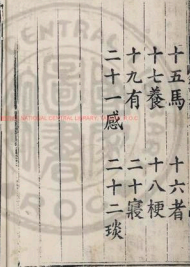 十五馬 十六者
十七養 十八梗
十九有 二十寢
二十一感 二十二琰